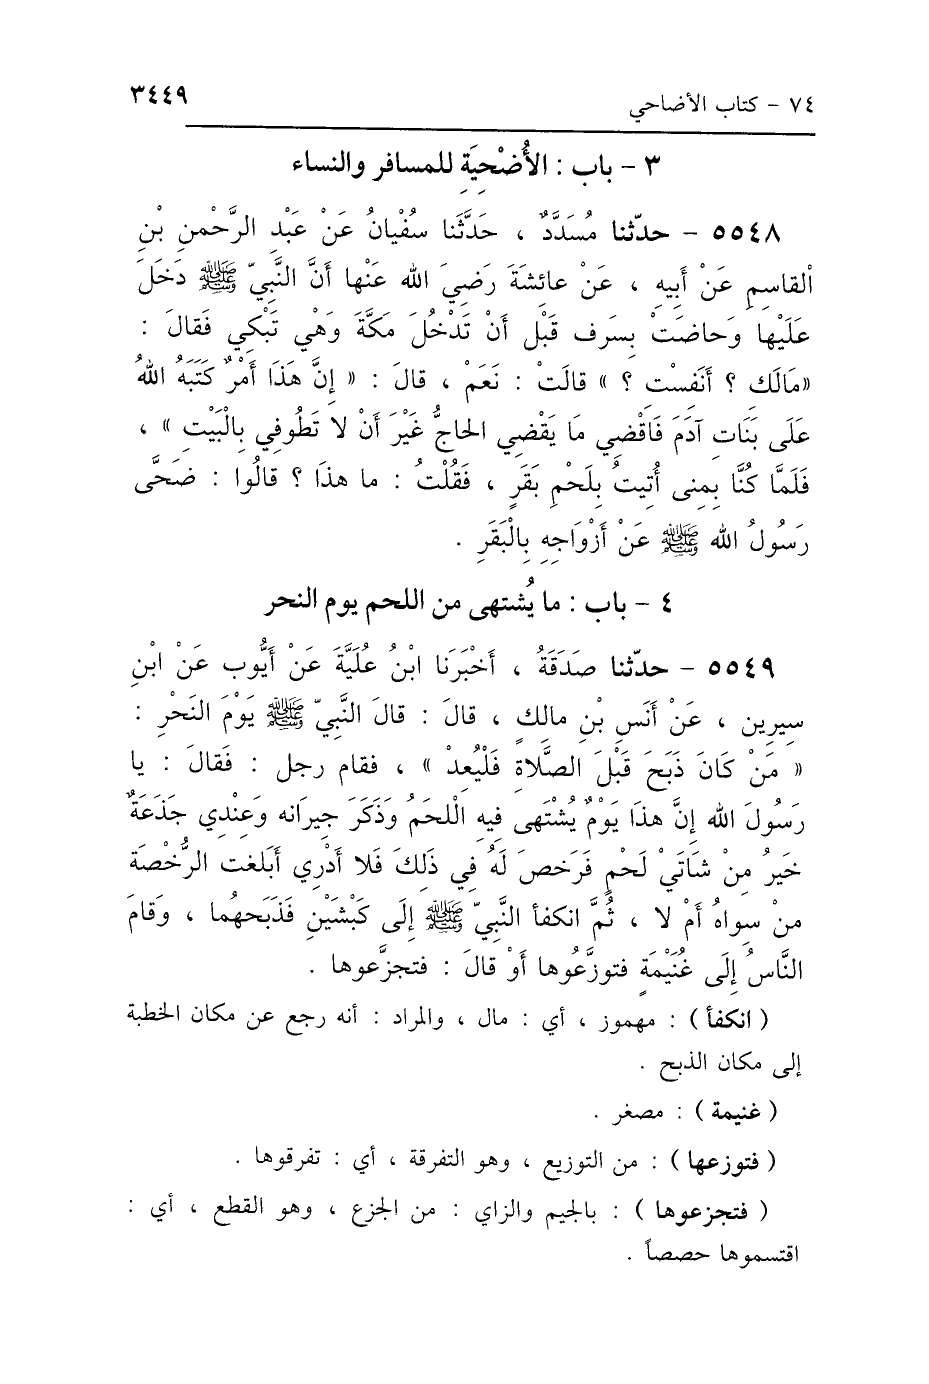 ٧٤ - كتاب الأضاحي ٣٤٤٩
٣ - باب : الأُضْحِيَةِ للمسافر والنساء
٥٥٤٨ - حدّثنا مُسَدَّدٌ ، حَدَّثَنا سُفْيانُ عَنْ عَبْدِ الرَّحْمنِ بْنِ
اْلقاسِمِ عَنْ أَبيهِ ، عَنْ عائِشَةَ رَضِيَ الله عَنْها أَنَّ النَّبيّ ﷺ دَخَلَ
عَلَيْها وَحاضَتْ بِسَرِف قَبْلَ أَنْ تَدْخُلَ مَكَّةَ وَهْي تَبْكي فَقالَ :
«مَالَكِ ؟ أَنَفِسْتِ ؟ » قالَتْ : نَعَمْ ، قالَ : « إِنَّ هَذَا أَمْرٌ كَتَبَهُ اللهُ
عَلَى بَنَاتِ آدَمَ فَاقْضِي مَا يَقْضِي الحاجُّ غَيْرَ أَنْ لا تَطُوفي بِالْبَيْتِ » ،
فَلَمَّا كُنَّا بِمِنى أُتِيتُ بِلَحْمِ بَقَرٍ ، فَقُلْتُ : ما هذَا ؟ قالُوا : ضَحَّى
رَسُولُ الله ﷺ عَنْ أَزْوَاجِهِ بِالْبَقَرِ .
٤ - باب : ما يُشتهى من اللحم يوم النحر
٥٥٤٩ - حدّثنا صَدَقَةُ ، أَخْبَرَنا ابْنُ عُلَيَّةَ عَنْ أَيُّوب عَنْ ابْنِ
سِيرِين ، عَنْ أَنَسِ بْنِ مالكٍ ، قالَ : قالَ النَّبيّ ﷺ يَوْمَ النَحْرِ :
« مَنْ كَانَ ذَبَحَ قَبْلَ الصَّلاةِ فَلْيُعِدْ » ، فقام رجل : فَقالَ : يا
رَسُولَ الله إِنَّ هذَا يَوْمٌ يُشْتَهَى فِيهِ الْلحَمُ وَذَكَرَ جيرَانه وَعِنْدِي جَذَعَةٌ
خَيرُ مِنْ شاتَيْ لَحْمٍ فَرَخصَ لَهُ في ذَلِكَ فَلا أَدْرِي أَبَلغت الرُّخْصَة
مَنْ سِواهُ أَمْ لا ، ثُمَّ انكفأ النَّبيّ ﷺ إِلَى كَبْشَيْنِ فَذَبَحهُما ، وَقامَ
النَّاسُ إِلَى غُنَيْمَةٍ فتوزَّعُوها أَوْ قالَ : فتجزَّعوها .
( انكفأ ) : مهموز ، أي : مال ، والمراد : أنه رجع عن مكان الخطبة
إلى مكان الذبح .
( غنيمة ) : مصغر .
( فتوزعها ) : من التوزيع ، وهو التفرقة ، أي : تفرقوها .
( فتجزعوها ) : بالجيم والزاي : من الجزع ، وهو القطع ، أي :
اقتسموها حصصاً .